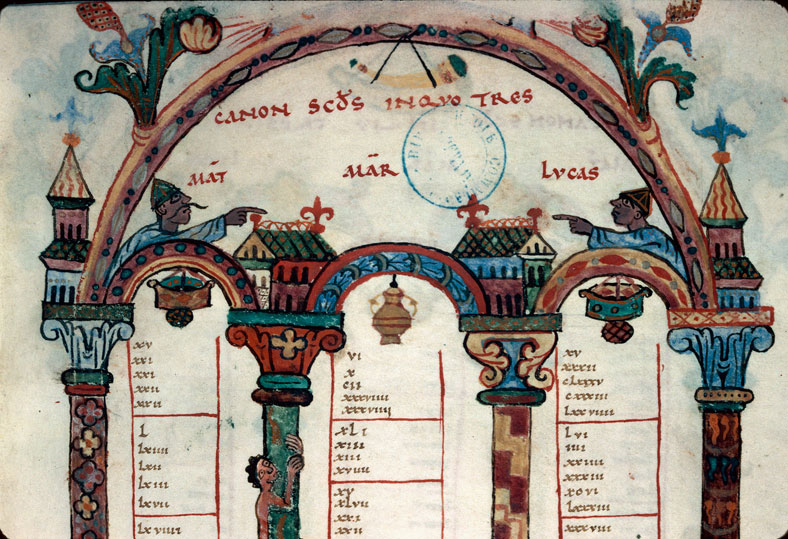 CANON SCDS INQVO TRES
MAT MAR LVCAS
xv
xxi
xxi
xxii
xxii
L
Lxiiii
Lxii
Lxiii
Lxvii
Lxviiii
vi
x
cii
xxxviiii
xxxviiii
xLi
xiii
xiii
xviii
xv
xLvii
xxi
xxii
xv
xxxii
cLxxxv
cxxxiii
Lxxviiii
Lvi
iii
xxiiii
xxxiii
xcvi
Lxxxiii
xxxviii